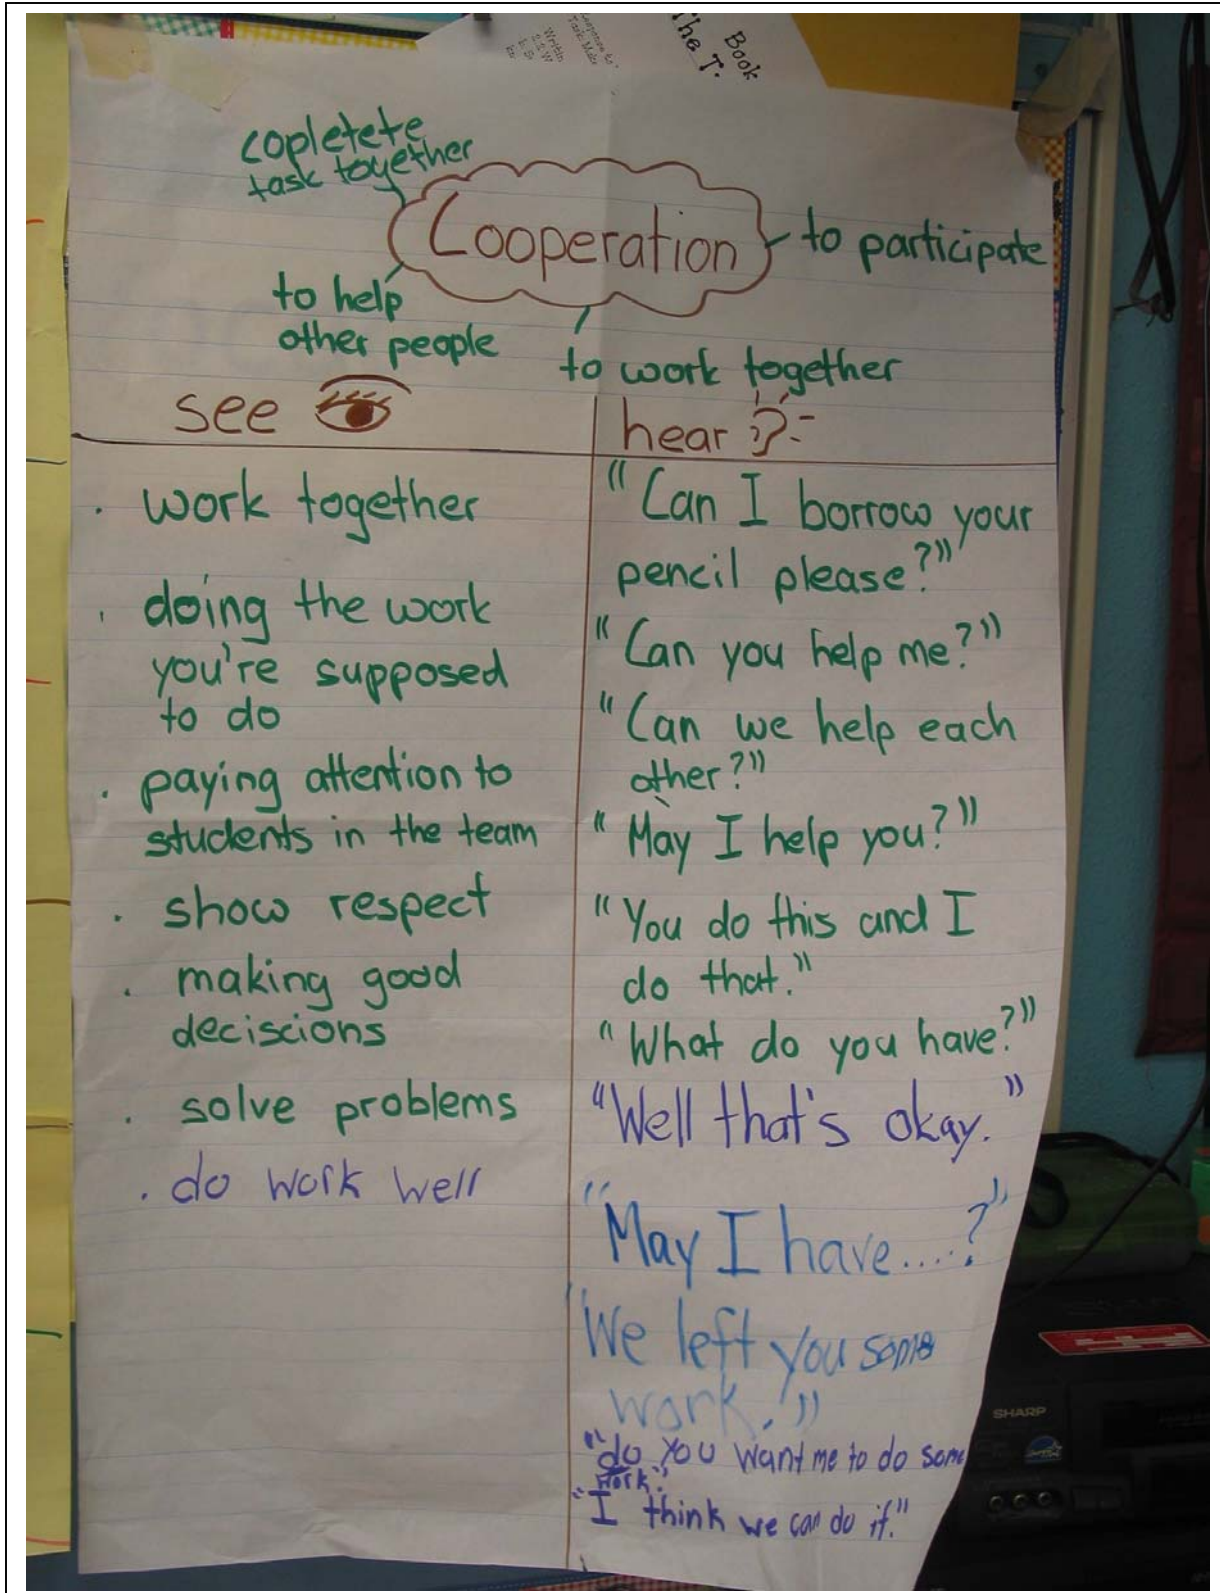 Book
The T.
Writin
copletete
task together
Cooperation
to participate
to help
other people
to work together
see
hear
. work together
. doing the work
you're supposed
to do
. paying attention to
students in the team
. show respect
. making good
deciscions
. solve problems
. do work well
"Can I borrow your
pencil please?"
"Can you help me?"
"Can we help each
other?"
"May I help you?"
"You do this and I
do that."
"What do you have?"
"Well that's okay."
"May I have....?"
"We left you some
work."
"do you want me to do some
work?"
"I think we can do it."
SHARP